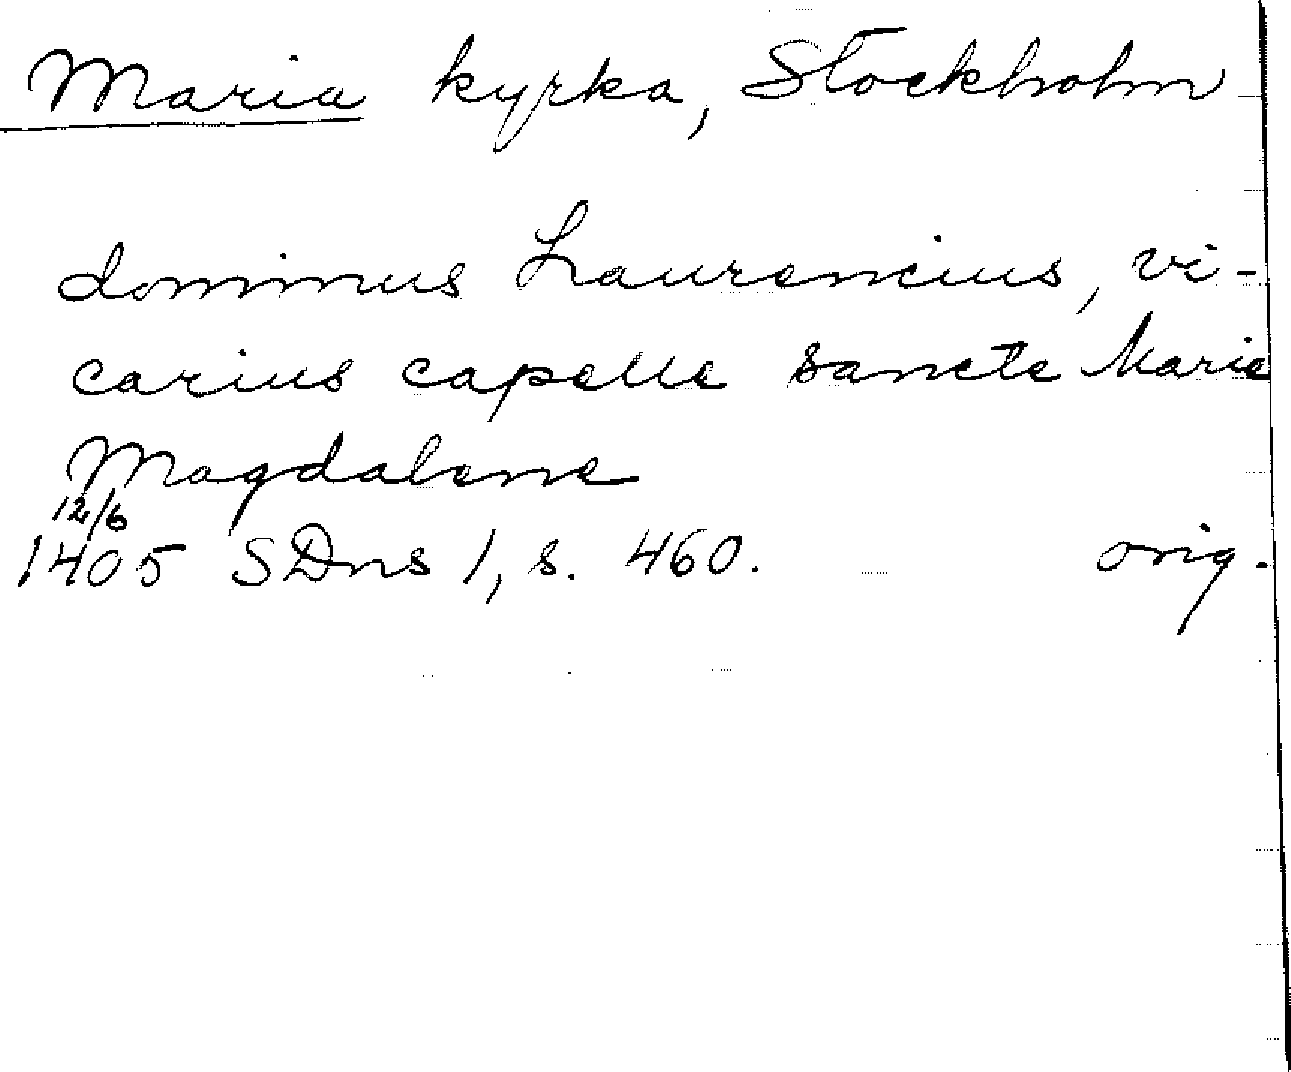 Maria kyrka, Stockholm
dominus Laurencius, vi-
carius capelle sancte Marie
Magdalene
12/6
1405 SDns 1, s. 460. orig.